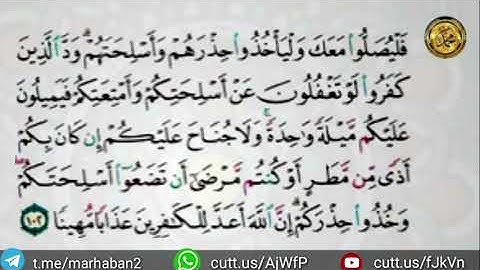 فَلْيُصَلُّوا۟ مَعَكَ وَلْيَأْخُذُوا۟ حِذْرَهُمْ وَأَسْلِحَتَهُمْ ۗ وَدَّ ٱلَّذِينَ
كَفَرُوا۟ لَوْ تَغْفُلُونَ عَنْ أَسْلِحَتِكُمْ وَأَمْتِعَتِكُمْ فَيَمِيلُونَ
عَلَيْكُم مَّيْلَةً وَٰحِدَةً ۚ وَلَا جُنَاحَ عَلَيْكُمْ إِن كَانَ بِكُمْ
أَذًى مِّن مَّطَرٍ أَوْ كُنتُم مَّرْضَىٰٓ أَن تَضَعُوٓا۟ أَسْلِحَتَكُمْ ۖ
وَخُذُوا۟ حِذْرَكُمْ ۗ إِنَّ ٱللَّهَ أَعَدَّ لِلْكَٰفِرِينَ عَذَابًا مُّهِينًا ١٠٢
t.me/marhaban2 cutt.us/AjWfP cutt.us/fJkVn